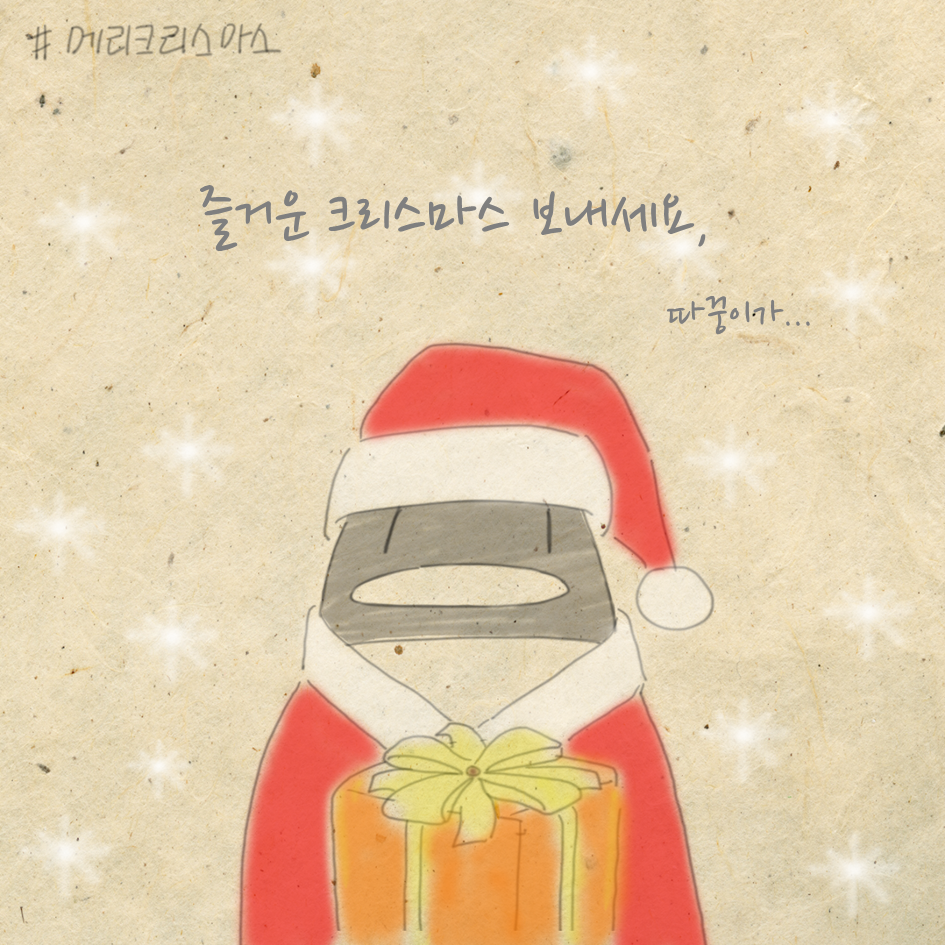 # 메리크리스마스
즐거운 크리스마스 보내세요,
따꿍이가...